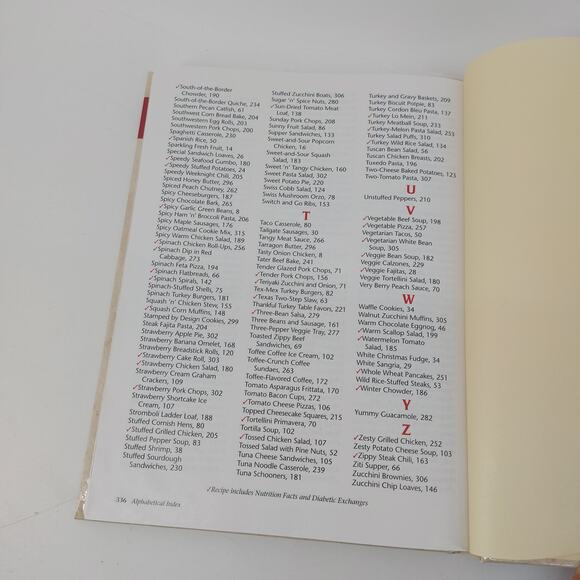 ✓South-of-the-Border
Chowder, 190
South-of-the-Border Quiche, 234
Southern Pecan Catfish, 61
Southwest Corn Bread Bake, 204
Southwestern Egg Rolls, 203
Southwestern Pork Chops, 200
Spaghetti Casserole, 230
✓Spanish Rice, 50
Sparkling Fresh Fruit, 14
Special Sandwich Loaves, 26
✓Speedy Seafood Gumbo, 180
✓Speedy Stuffed Potatoes, 24
Speedy Weeknight Chili, 205
Spiced Honey Butter, 296
Spiced Peach Chutney, 262
Spicy Cheeseburgers, 187
Spicy Chocolate Bark, 265
✓Spicy Garlic Green Beans, 8
Spicy Ham 'n' Broccoli Pasta, 206
Spicy Maple Sausages, 176
Spicy Oatmeal Cookie Mix, 315
Spicy Warm Chicken Salad, 189
✓Spinach Chicken Roll-Ups, 256
✓Spinach Dip in Red
Cabbage, 273
Spinach Feta Pizza, 194
✓Spinach Flatbreads, 66
✓Spinach Spirals, 142
Spinach-Stuffed Shells, 75
Spinach Turkey Burgers, 181
Squash 'n' Chicken Stew, 155
✓Squash Corn Muffins, 148
Stamped by Design Cookies, 299
Steak Fajita Pasta, 204
Strawberry Apple Pie, 302
Strawberry Banana Omelet, 168
Strawberry Breadstick Rolls, 120
✓Strawberry Cake Roll, 303
✓Strawberry Chicken Salad, 180
Strawberry Cream Graham
Crackers, 109
✓Strawberry Pork Chops, 302
Strawberry Shortcake Ice
Cream, 107
Stromboli Ladder Loaf, 188
Stuffed Cornish Hens, 80
✓Stuffed Grilled Chicken, 205
Stuffed Pepper Soup, 83
Stuffed Shrimp, 38
Stuffed Sourdough
Sandwiches, 230
Stuffed Zucchini Boats, 306
Sugar 'n' Spice Nuts, 280
✓Sun-Dried Tomato Meat
Loaf, 138
Sunday Pork Chops, 208
Sunny Fruit Salad, 86
Supper Sandwiches, 133
Sweet-and-Sour Popcorn
Chicken, 16
Sweet-and-Sour Squash
Salad, 183
Sweet 'n' Tangy Chicken, 160
Sweet Pasta Salad, 302
Sweet Potato Pie, 220
Swiss Cobb Salad, 124
Swiss Mushroom Orzo, 78
Switch and Go Ribs, 153
T
Taco Casserole, 80
Tailgate Sausages, 30
Tangy Meat Sauce, 266
Tarragon Butter, 296
Tasty Onion Chicken, 8
Tater Beef Bake, 241
Tender Glazed Pork Chops, 71
✓Tender Pork Chops, 156
✓Teriyaki Zucchini and Onion, 71
Tex-Mex Turkey Burgers, 82
✓Texas Two-Step Slaw, 63
Thankful Turkey Table Favors, 221
✓Three-Bean Salsa, 279
Three Beans and Sausage, 161
Three-Pepper Veggie Tray, 277
Toasted Zippy Beef
Sandwiches, 69
Toffee Coffee Ice Cream, 102
Toffee-Crunch Coffee
Sundaes, 263
Toffee-Flavored Coffee, 172
Tomato Asparagus Frittata, 170
Tomato Bacon Cups, 272
✓Tomato Cheese Pizzas, 106
Topped Cheesecake Squares, 215
✓Tortellini Primavera, 70
Tortilla Soup, 102
✓Tossed Chicken Salad, 107
Tossed Salad with Pine Nuts, 52
Tuna Cheese Sandwiches, 105
Tuna Noodle Casserole, 239
Tuna Schooners, 181
Turkey and Gravy Baskets, 209
Turkey Biscuit Potpie, 83
Turkey Cordon Bleu Pasta, 137
✓Turkey Lo Mein, 211
Turkey Meatball Soup, 233
✓Turkey-Melon Pasta Salad, 253
Turkey Salad Puffs, 310
✓Turkey Wild Rice Salad, 134
Tuscan Bean Salad, 56
Tuscan Chicken Breasts, 202
Tuxedo Pasta, 196
Two-Cheese Baked Potatoes, 123
Two-Tomato Pasta, 307
U
Unstuffed Peppers, 210
V
✓Vegetable Beef Soup, 198
✓Vegetable Pizza, 257
Vegetarian Tacos, 50
✓Vegetarian White Bean
Soup, 305
✓Veggie Bean Soup, 182
Veggie Calzones, 229
✓Veggie Fajitas, 28
Veggie Tortellini Salad, 180
Very Berry Peach Sauce, 70
W
Waffle Cookies, 34
Walnut Zucchini Muffins, 305
Warm Chocolate Eggnog, 46
✓Warm Scallop Salad, 199
✓Watermelon Tomato
Salad, 185
White Christmas Fudge, 34
White Sangria, 29
✓Whole Wheat Pancakes, 251
Wild Rice-Stuffed Steaks, 53
✓Winter Chowder, 186
Y
Yummy Guacamole, 282
Z
✓Zesty Grilled Chicken, 252
Zesty Potato Cheese Soup, 103
✓Zippy Steak Chili, 163
Ziti Supper, 66
Zucchini Brownies, 306
Zucchini Chip Loaves, 146
✓Recipe includes Nutrition Facts and Diabetic Exchanges
336 Alphabetical Index